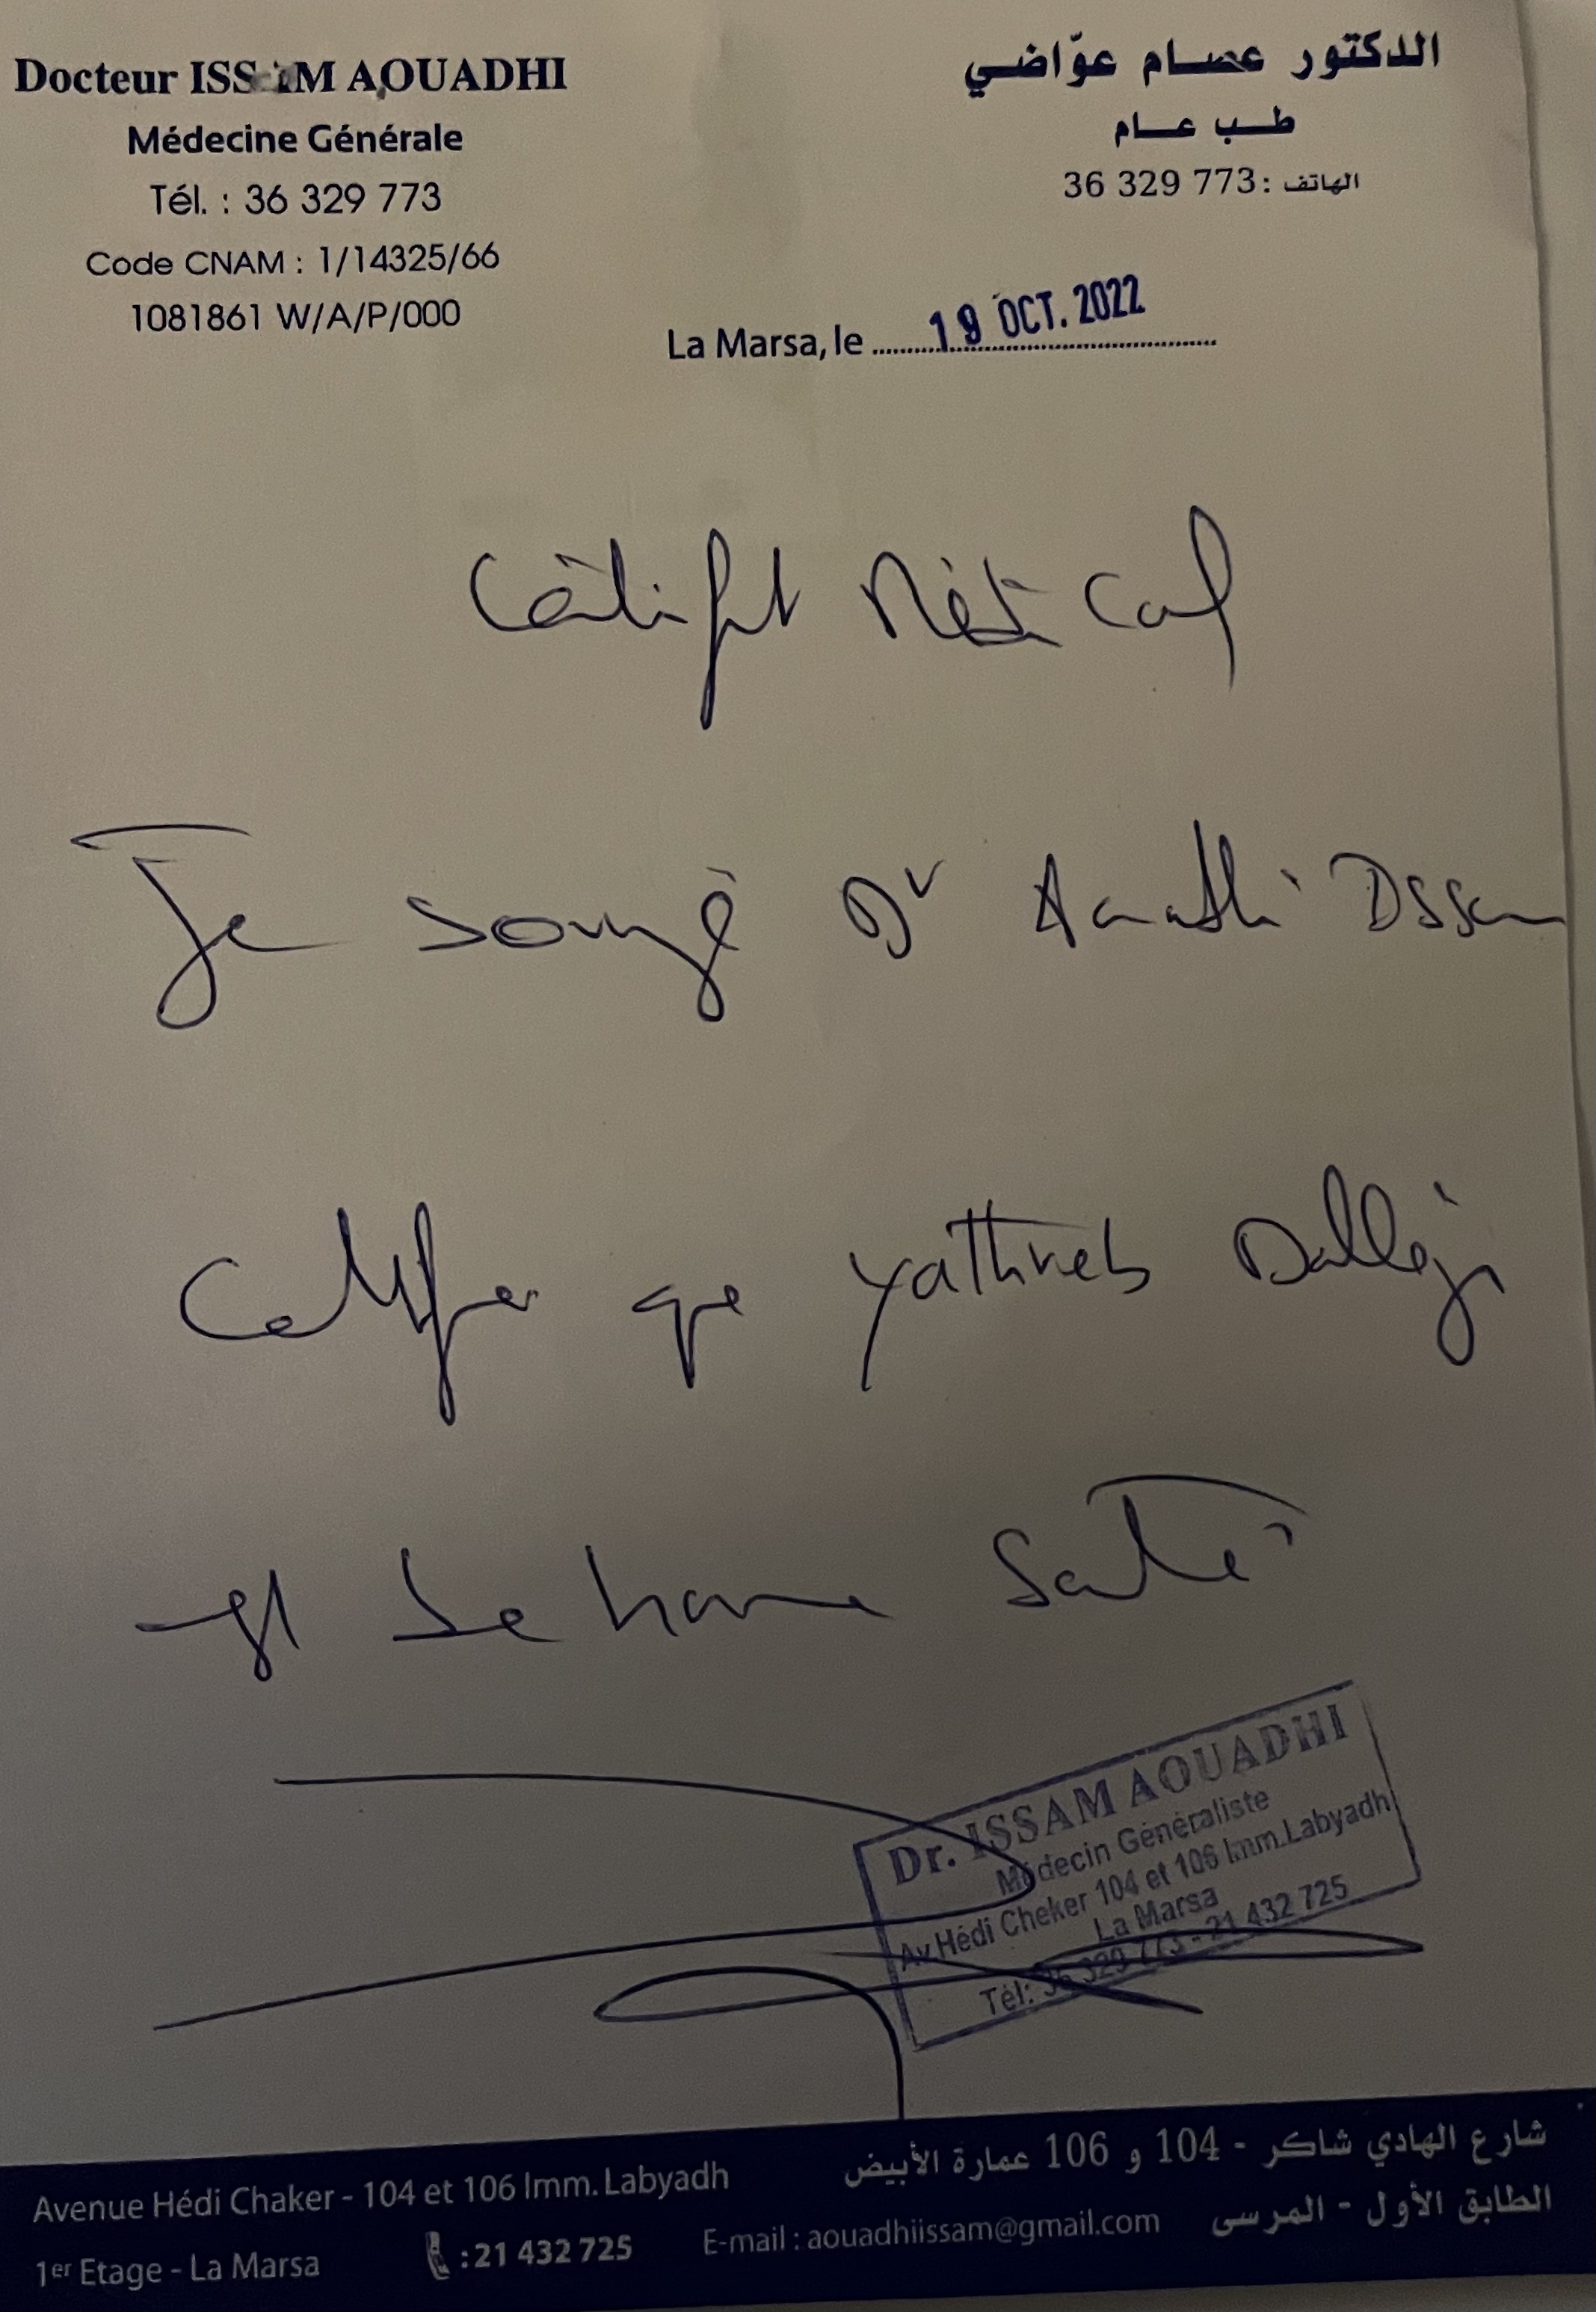 Docteur ISSAM AOUADHI
Médecine Générale
Tél. : 36 329 773
Code CNAM : 1/14325/66
1081861 W/A/P/000
الدكتور عصام عوّاضي
طب عام
الهاتف : 36 329 773
La Marsa, le 19 OCT. 2022
Certificat Médical
Je soussigné Dr Aouadhi Issam
Certifie que Yathreb Dallegi
est de bonne Santé
Dr. ISSAM AOUADHI
Médecin Généraliste
Av Hédi Cheker 104 et 106 Imm.Labyadh
La Marsa
Tél: 36 329 773 - 21 432 725
Avenue Hédi Chaker - 104 et 106 Imm. Labyadh
1er Etage - La Marsa
شارع الهادي شاكر - 104 و 106 عمارة الأبيض
الطابق الأول - المرسى
: 21 432 725
E-mail : aouadhiissam@gmail.com